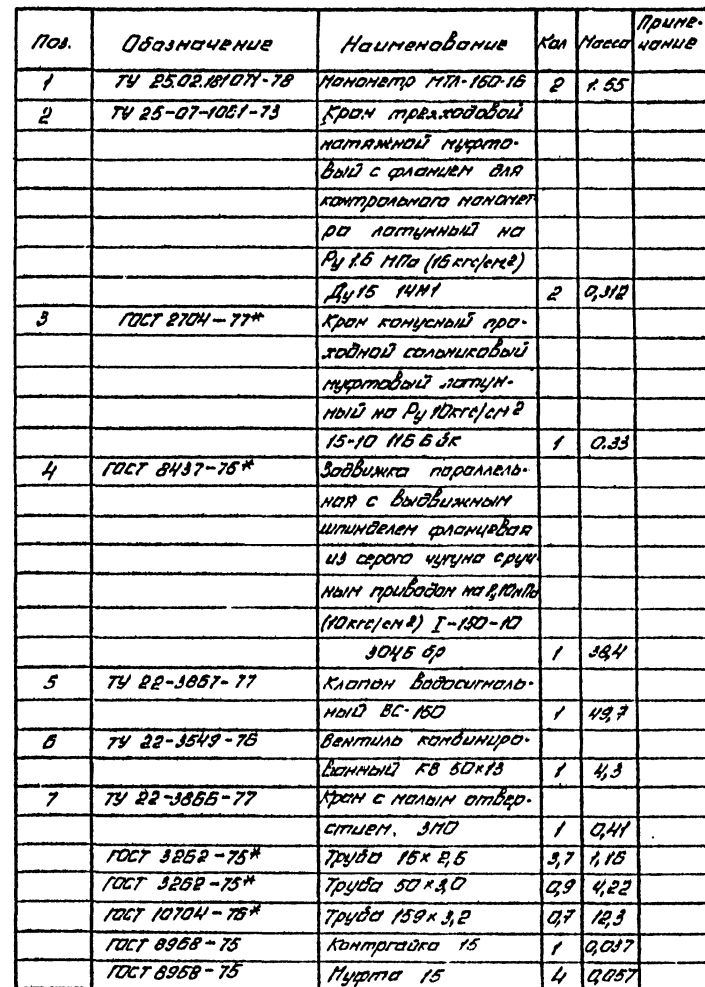 Поз. Обозначение Наименование Кол Масса Приме-
чание
1 ТУ 25.02.181071-78 Манометр МТЛ-160-16 2 1.55
2 ТУ 25-07-1061-73 Кран трехходовой
натяжной муфто-
вый с фланцем для
контрольного маномет
ра латунный на
Ру 1.6 МПа (16 кгс/см2)
Ду 15 14М1 2 0,312
3 ГОСТ 2704-77* Кран конусный про-
ходной сальниковый
муфтовый латун-
ный на Ру 10кгс/см2
15-10 11Б 6 бк 1 0.33
4 ГОСТ 8437-76* Задвижка параллель-
ная с выдвижным
шпинделем фланцевая
из серого чугуна с руч-
ным приводом на
(10кгс/см2) I-150-10
30ч6 бр 1 38,4
5 ТУ 22-3867-77 Клапан водосигналь-
ный ВС-150 1 49,7
6 ТУ 22-3549-76 Вентиль комбиниро-
ванный КВ 50×13 1 4,3
7 ТУ 22-3866-77 Кран с малым отвер-
стием. ЗМО 1 0,41
ГОСТ 3262-75* Труба 15×2,5 3,7 1,16
ГОСТ 3262-75* Труба 50×3,0 0,9 4,22
ГОСТ 10704-76* Труба 159×3,2 0,7 12,3
ГОСТ 8968-75 Контргайка 15 1 0,037
ГОСТ 8958-75 Муфта 15 4 0,057